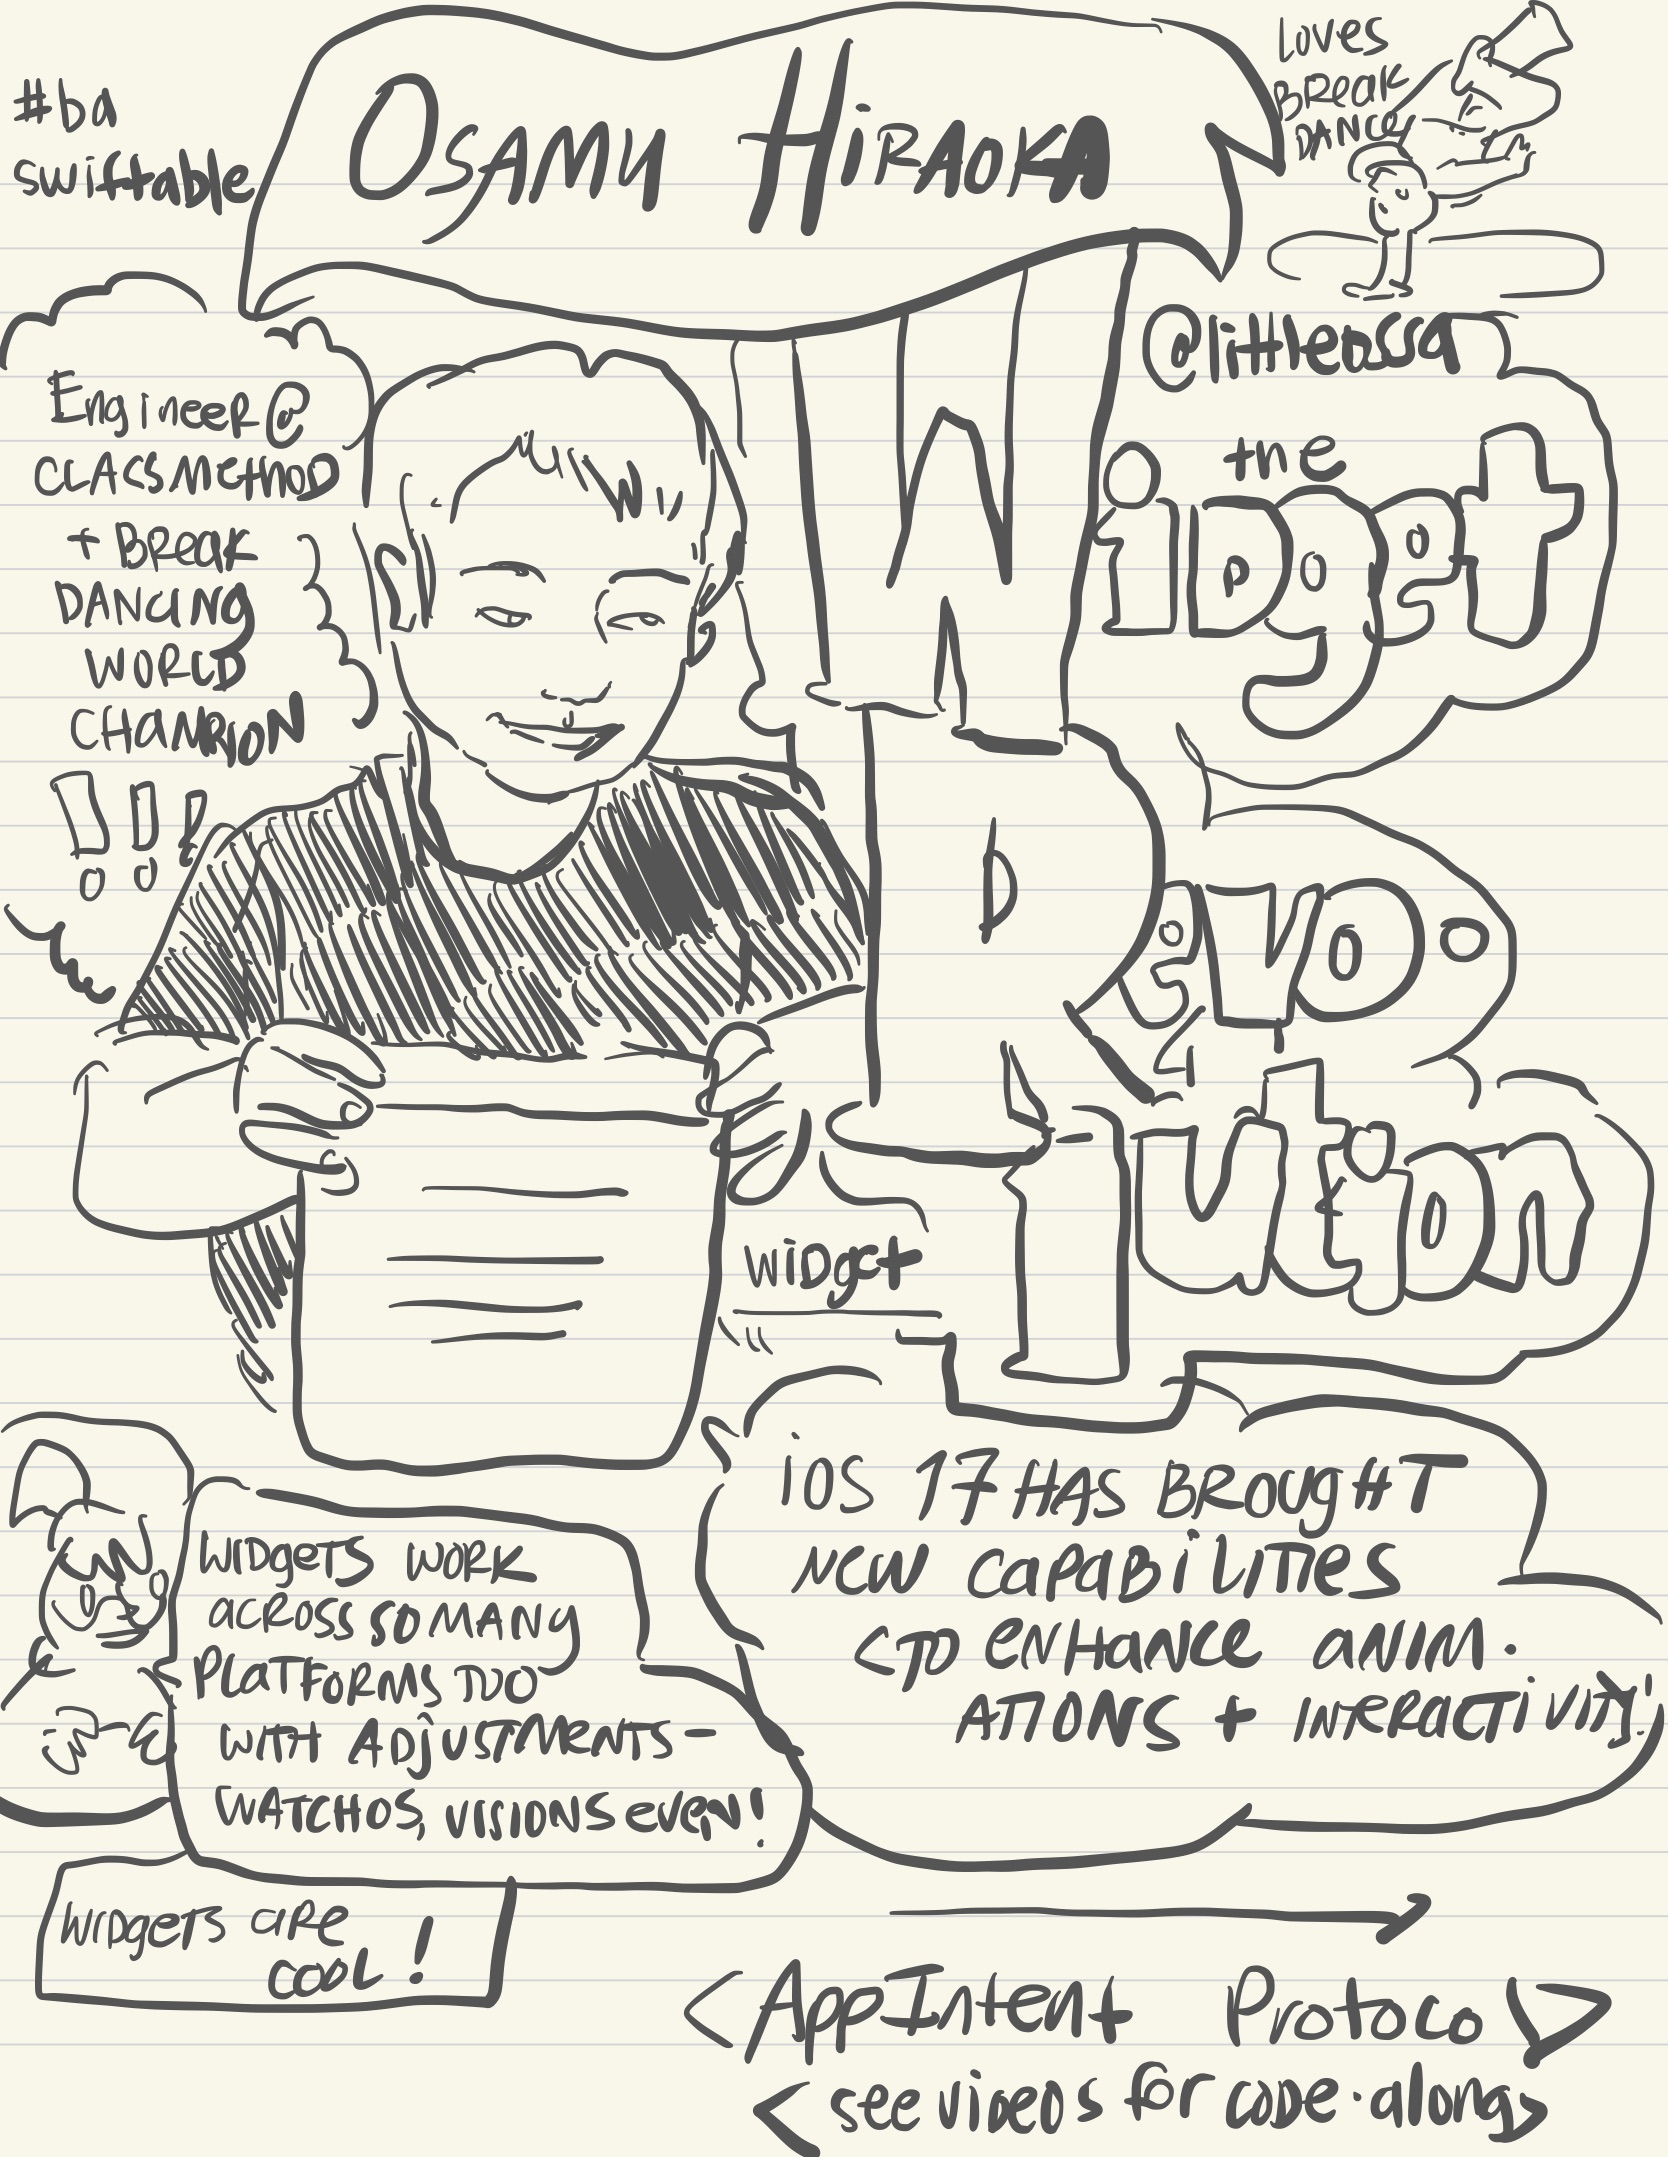 #ba
swiftable
OSAMU HIRAOKA
LOVES
BREAK
DANCE
@littleossa
ENGINEER @
CLASSMETHOD
+ BREAK
DANCING
WORLD
CHAMPION
!!!
the
WIDget
rEvo
lution
widget
iOS 17 HAS BROUGHT
NEW CAPABILITIES
TO ENHANCE ANIM-
ATIONS + INTERACTIVITY!
WIDgETS WORK
ACROSS SO MANY
PLATFORMS TOO
WITH ADJUSTMENTS -
WATCHOS, VISIONS EVEN!
WIDgETS ARE
COOL!
<AppIntent Protocol>
<see videos for code-along>